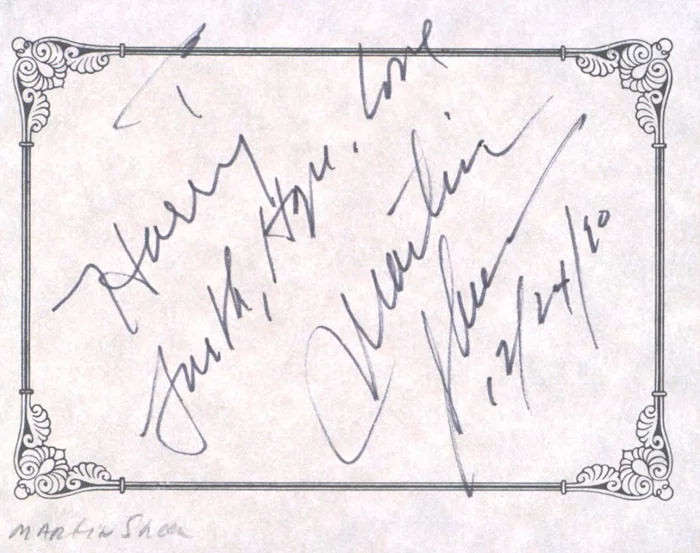 To
Harry
Faith, Hope, Love
Martin
Sheen
12/24/90
MARTIN Sheen